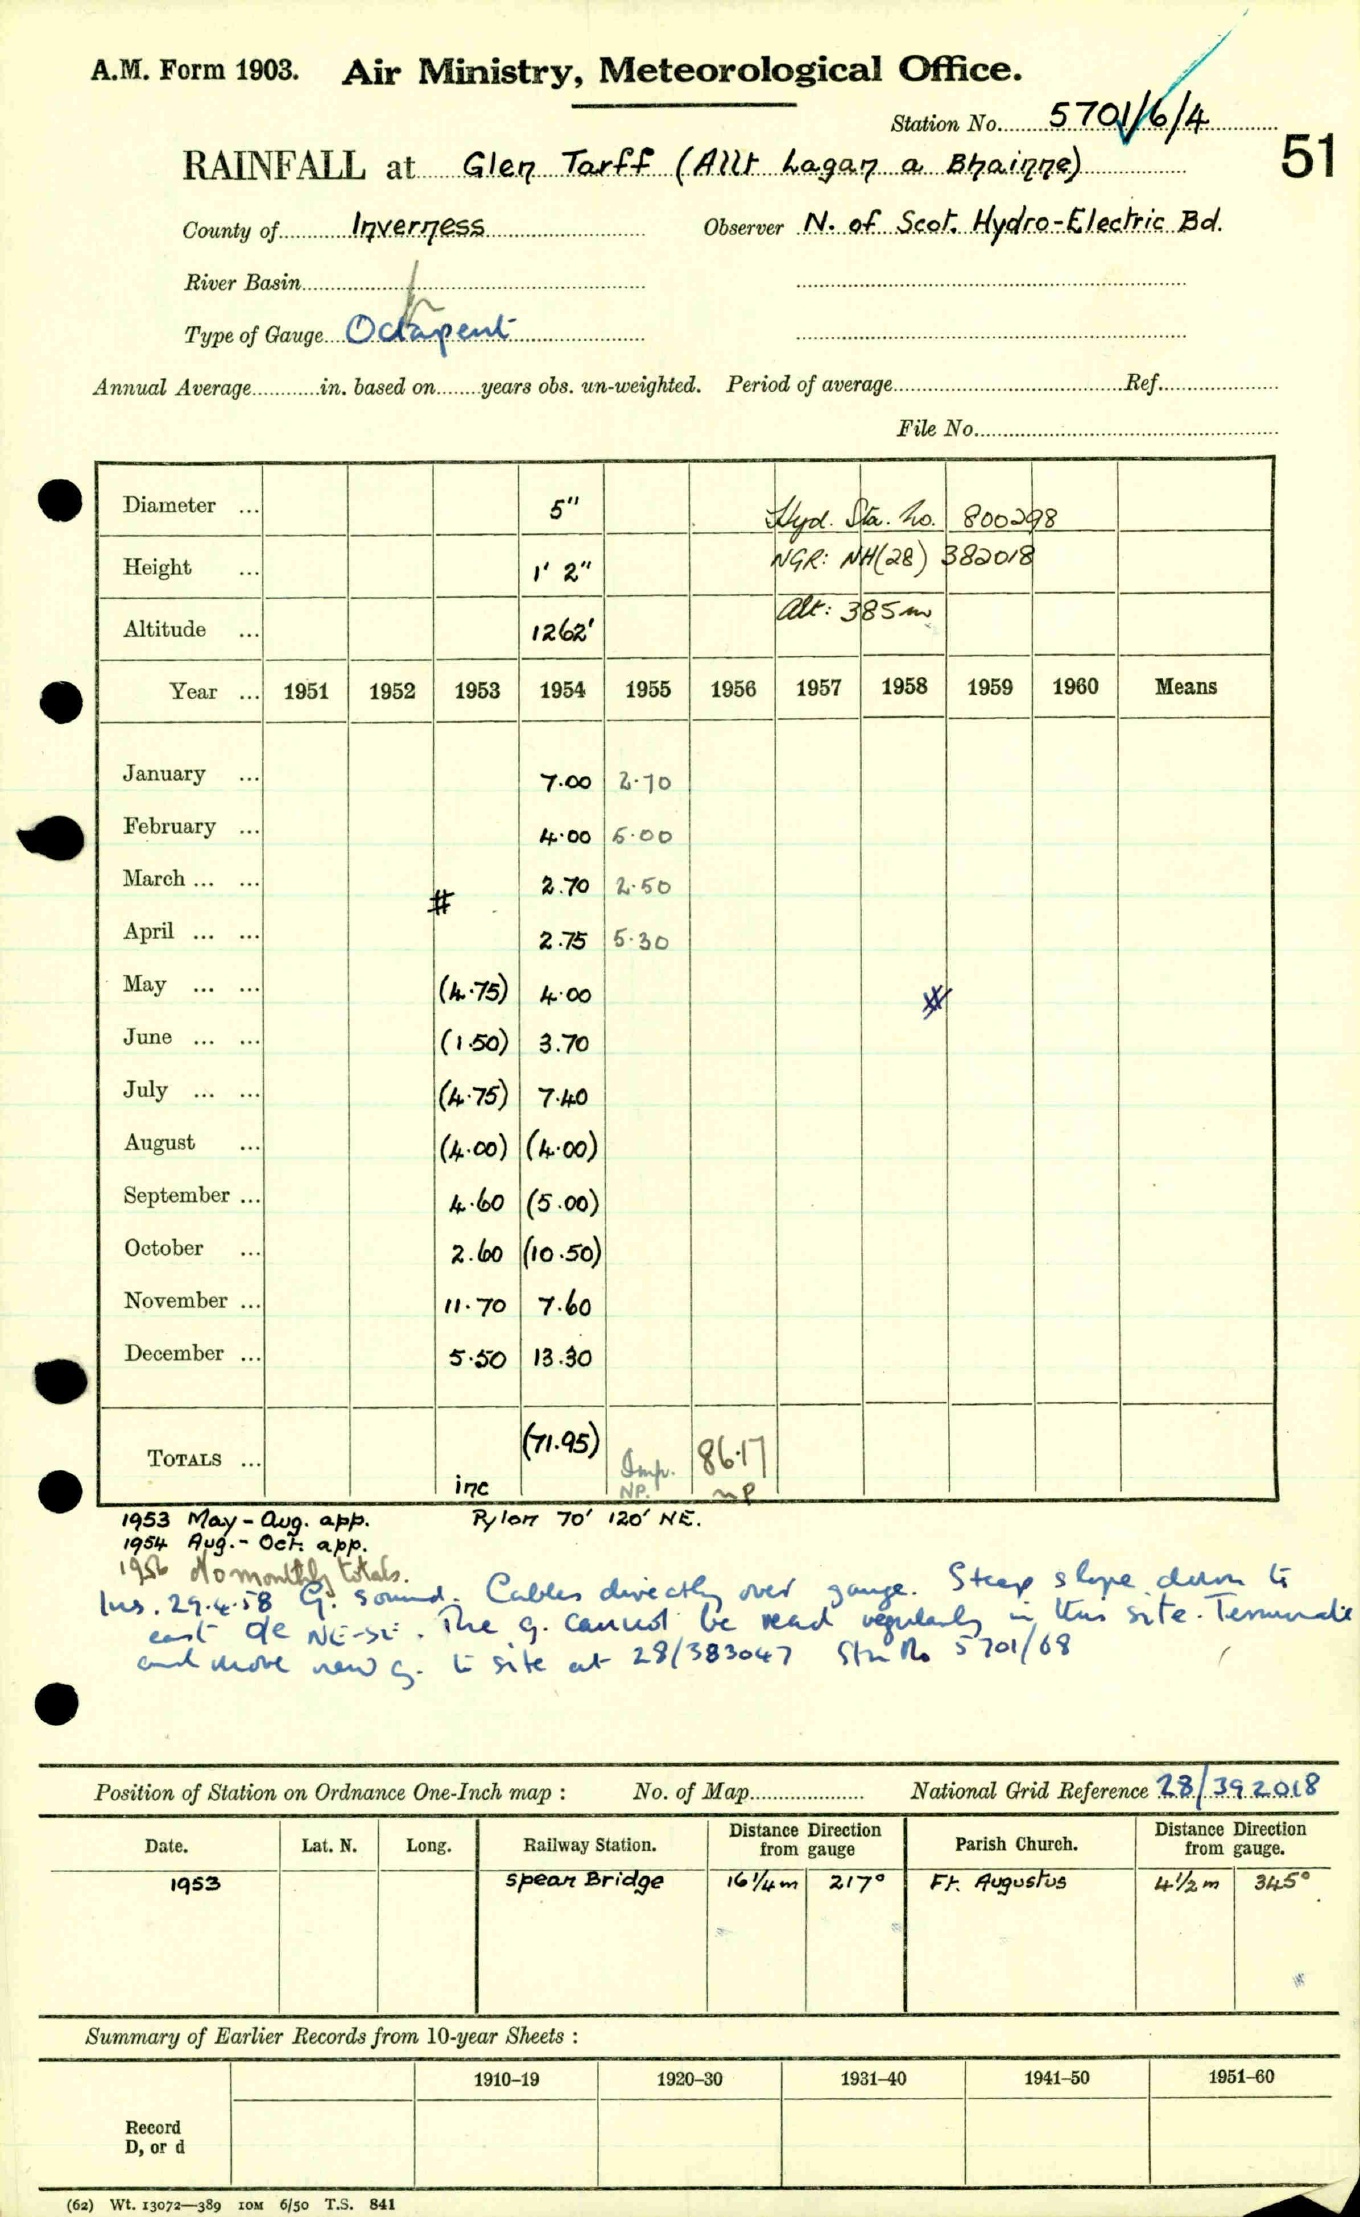 A.M. Form 1903. Air Ministry, Meteorological Office.
Station No. 5701/6/4
51
RAINFALL at Glen Tarff (Allt Lagan a Bhainne)
County of Inverness Observer N. of Scot. Hydro-Electric Bd.
River Basin
Type of Gauge Octapent
Annual Average in. based on years obs. un-weighted. Period of average Ref.
File No.
Diameter ... 5" Hyd. Sta. No. 800298
Height ... 1' 2" NGR: NH(28) 382018
Altitude ... 1262' Alt: 385m
Year ... 1951 1952 1953 1954 1955 1956 1957 1958 1959 1960 Means
January ... 7.00 2.70
February ... 4.00 6.00
March ... ... 2.70 2.50
#
April ... ... 2.75 5.30
May ... ... (4.75) 4.00
June ... ... (1.50) 3.70
July ... ... (4.75) 7.40
August ... (4.00) (4.00)
September ... 4.60 (5.00)
October ... 2.60 (10.50)
November ... 11.70 7.60
December ... 5.50 13.30
TOTALS ... inc (71.95) Imp. NP. 86.17 NP
1953 May - Aug. app. Pylon 70' 120' NE.
1954 Aug. - Oct. app.
1956 No monthly totals.
Ins. 29.4.58 G. sound. Cables directly over gauge. Steep slope down to
east NE-SE. The g. cannot be read regularly in this site. Terminate
and move new g. to site at 28/383047 Stn No 5701/68
Position of Station on Ordnance One-Inch map : No. of Map National Grid Reference 28/392018
Date. Lat. N. Long. Railway Station. Distance Direction from gauge Parish Church. Distance Direction from gauge.
1953 Spean Bridge 16 1/4 m 217° Ft. Augustus 4 1/2 m 345°
Summary of Earlier Records from 10-year Sheets :
1910–19 1920–30 1931–40 1941–50 1951–60
Record
D, or d
(62) Wt. 13072—389 10M 6/50 T.S. 841